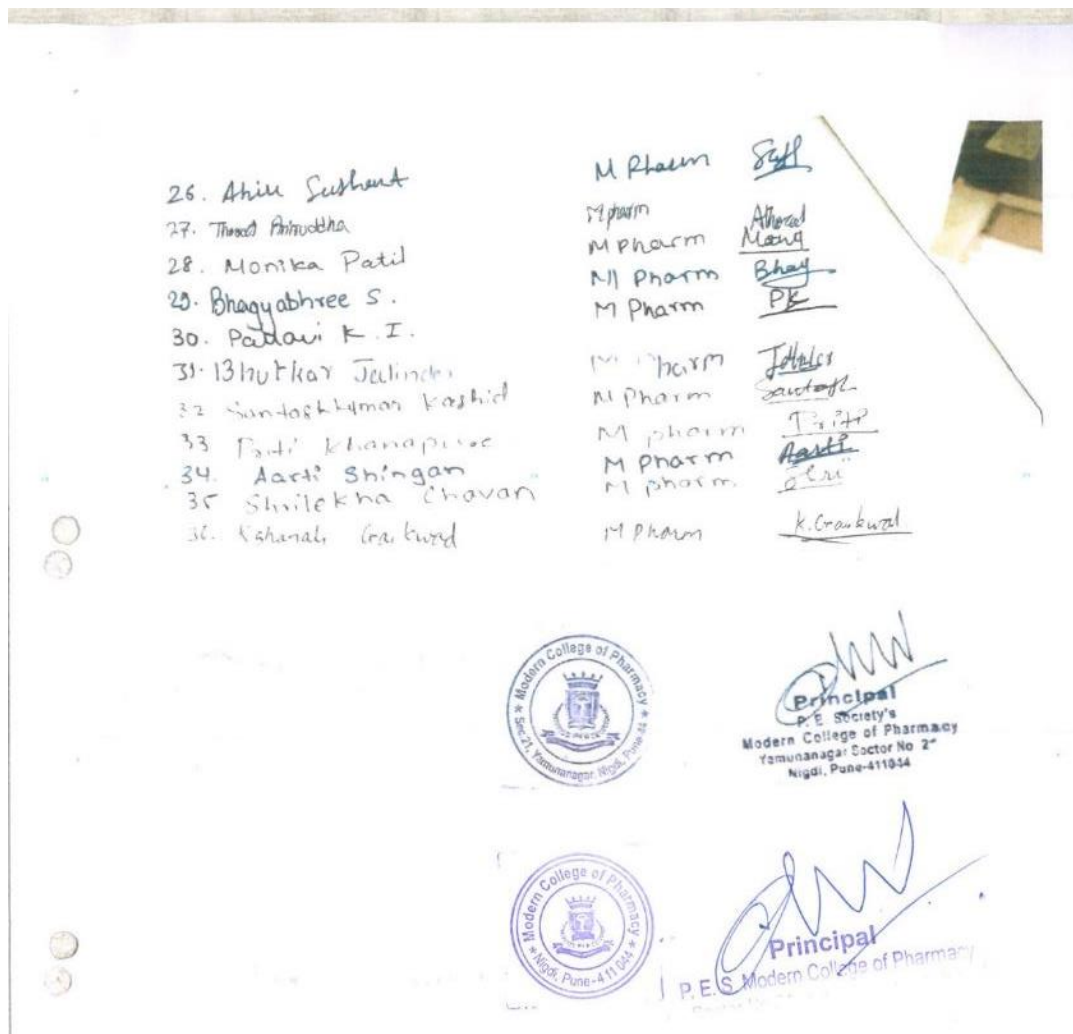 26. Ahire Sushant M Pharm
27. Thorat Aniruddha M pharm Athorat
28. Monika Patil M Pharm
29. Bhagyabhree S. M Pharm Bhag
30. Padavi K. I. M Pharm PK
31. Bhutkar Jalinder M Pharm
32 Santoshkumar Kashid M Pharm Santosh
33 Priti Khanapure M pharm Priti
34. Aarti Shingan M Pharm Aarti
35 Shrilekha Chavan M pharm. Shri
36. Gaikwad M Pharm K. Gaikwad
★ Modern College of Pharmacy ★ Sec.21, Yamunanagar, Nigdi, Pune-44
Principal
P. E. Society's
Modern College of Pharmacy
Yamunanagar Sector No
Nigdi, Pune-411044
★ Modern College of Pharmacy ★ Nigdi, Pune-411 044
Principal
P. E. S. Modern College of Pharmacy